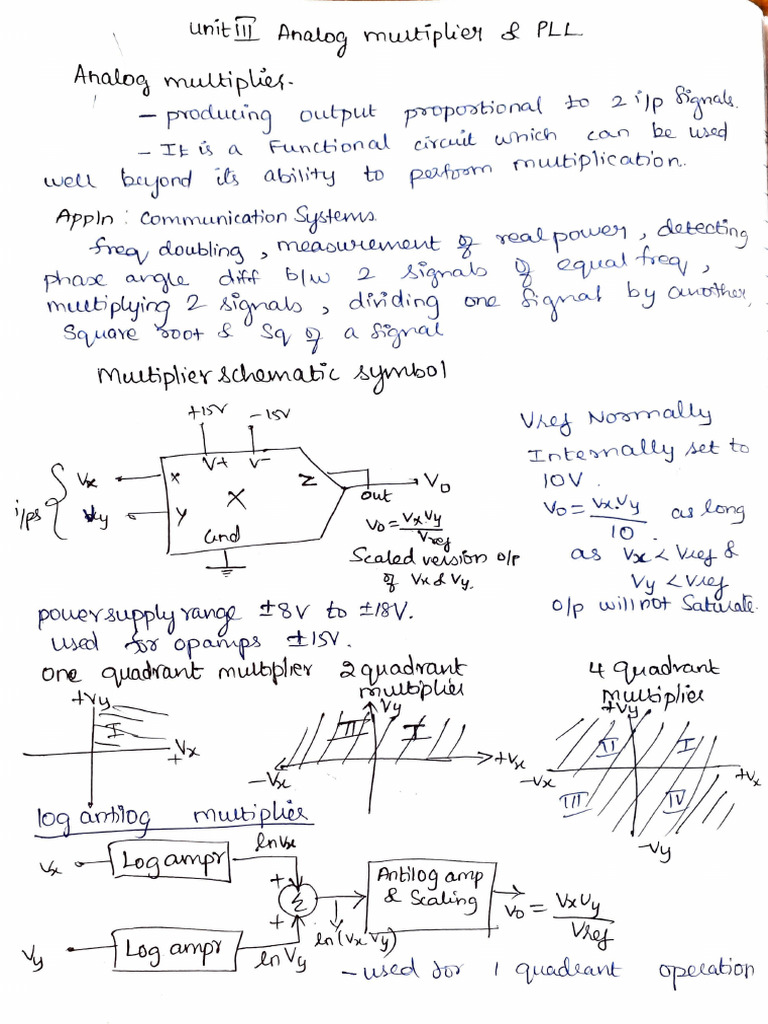 unit III Analog multiplier & PLL
Analog multiplier.
- producing output proportional to 2 i/p signals.
- It is a Functional circuit which can be used
well beyond its ability to perform multiplication.
Appln : Communication Systems
freq doubling , measurement of real power , detecting
phase angle diff b/w 2 signals of equal freq ,
multiplying 2 signals , dividing one signal by another,
Square root & Sq of a signal
Multiplier schematic symbol
+15V -15V
V+ V-
i/ps
Vx
X
Vy
Y
X
Gnd
Z
out
Vo
Vo = Vx.Vy / Vref
Scaled version o/p
of Vx & Vy.
Vref Normally
Internally set to
10V.
Vo = Vx.Vy / 10 as long
as Vx < Vref &
Vy < Vref
o/p will not saturate.
power supply range ±8V to ±18V.
used for opamps ±15V.
one quadrant multiplier
+Vy
I
+Vx
2 quadrant
multiplier
Vy
II I
-Vx
+Vx
4 quadrant
multiplier
+Vy
II I
-Vx
+Vx
III IV
-Vy
log antilog multiplier
Vx
Log ampr
lnVx
+
Σ
+
Vy
Log ampr
lnVy
ln(Vx.Vy)
Antilog amp
& Scaling
Vo = VxVy / Vref
- used for 1 quadrant operation